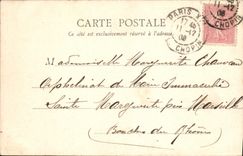 CARTE POSTALE
Ce côté est exclusivement réservé à l'adresse
PARIS
11-12
CHOPIN
11-12
08
CHOPIN
Mademoiselle Marguerite Chauveau
Orphelinat de Marie Immaculée
Sainte Marguerite près Marseille
Bouches du Rhône